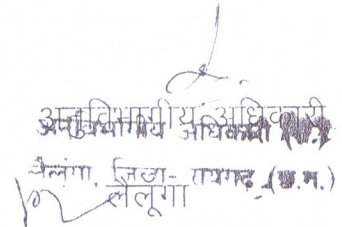 अनुविभागीय अधिकारी
अनुविभागीय अधिकारी (रा.)
लैलूंगा, जिला- रायगढ़ (छ.ग.)
लैलूंगा